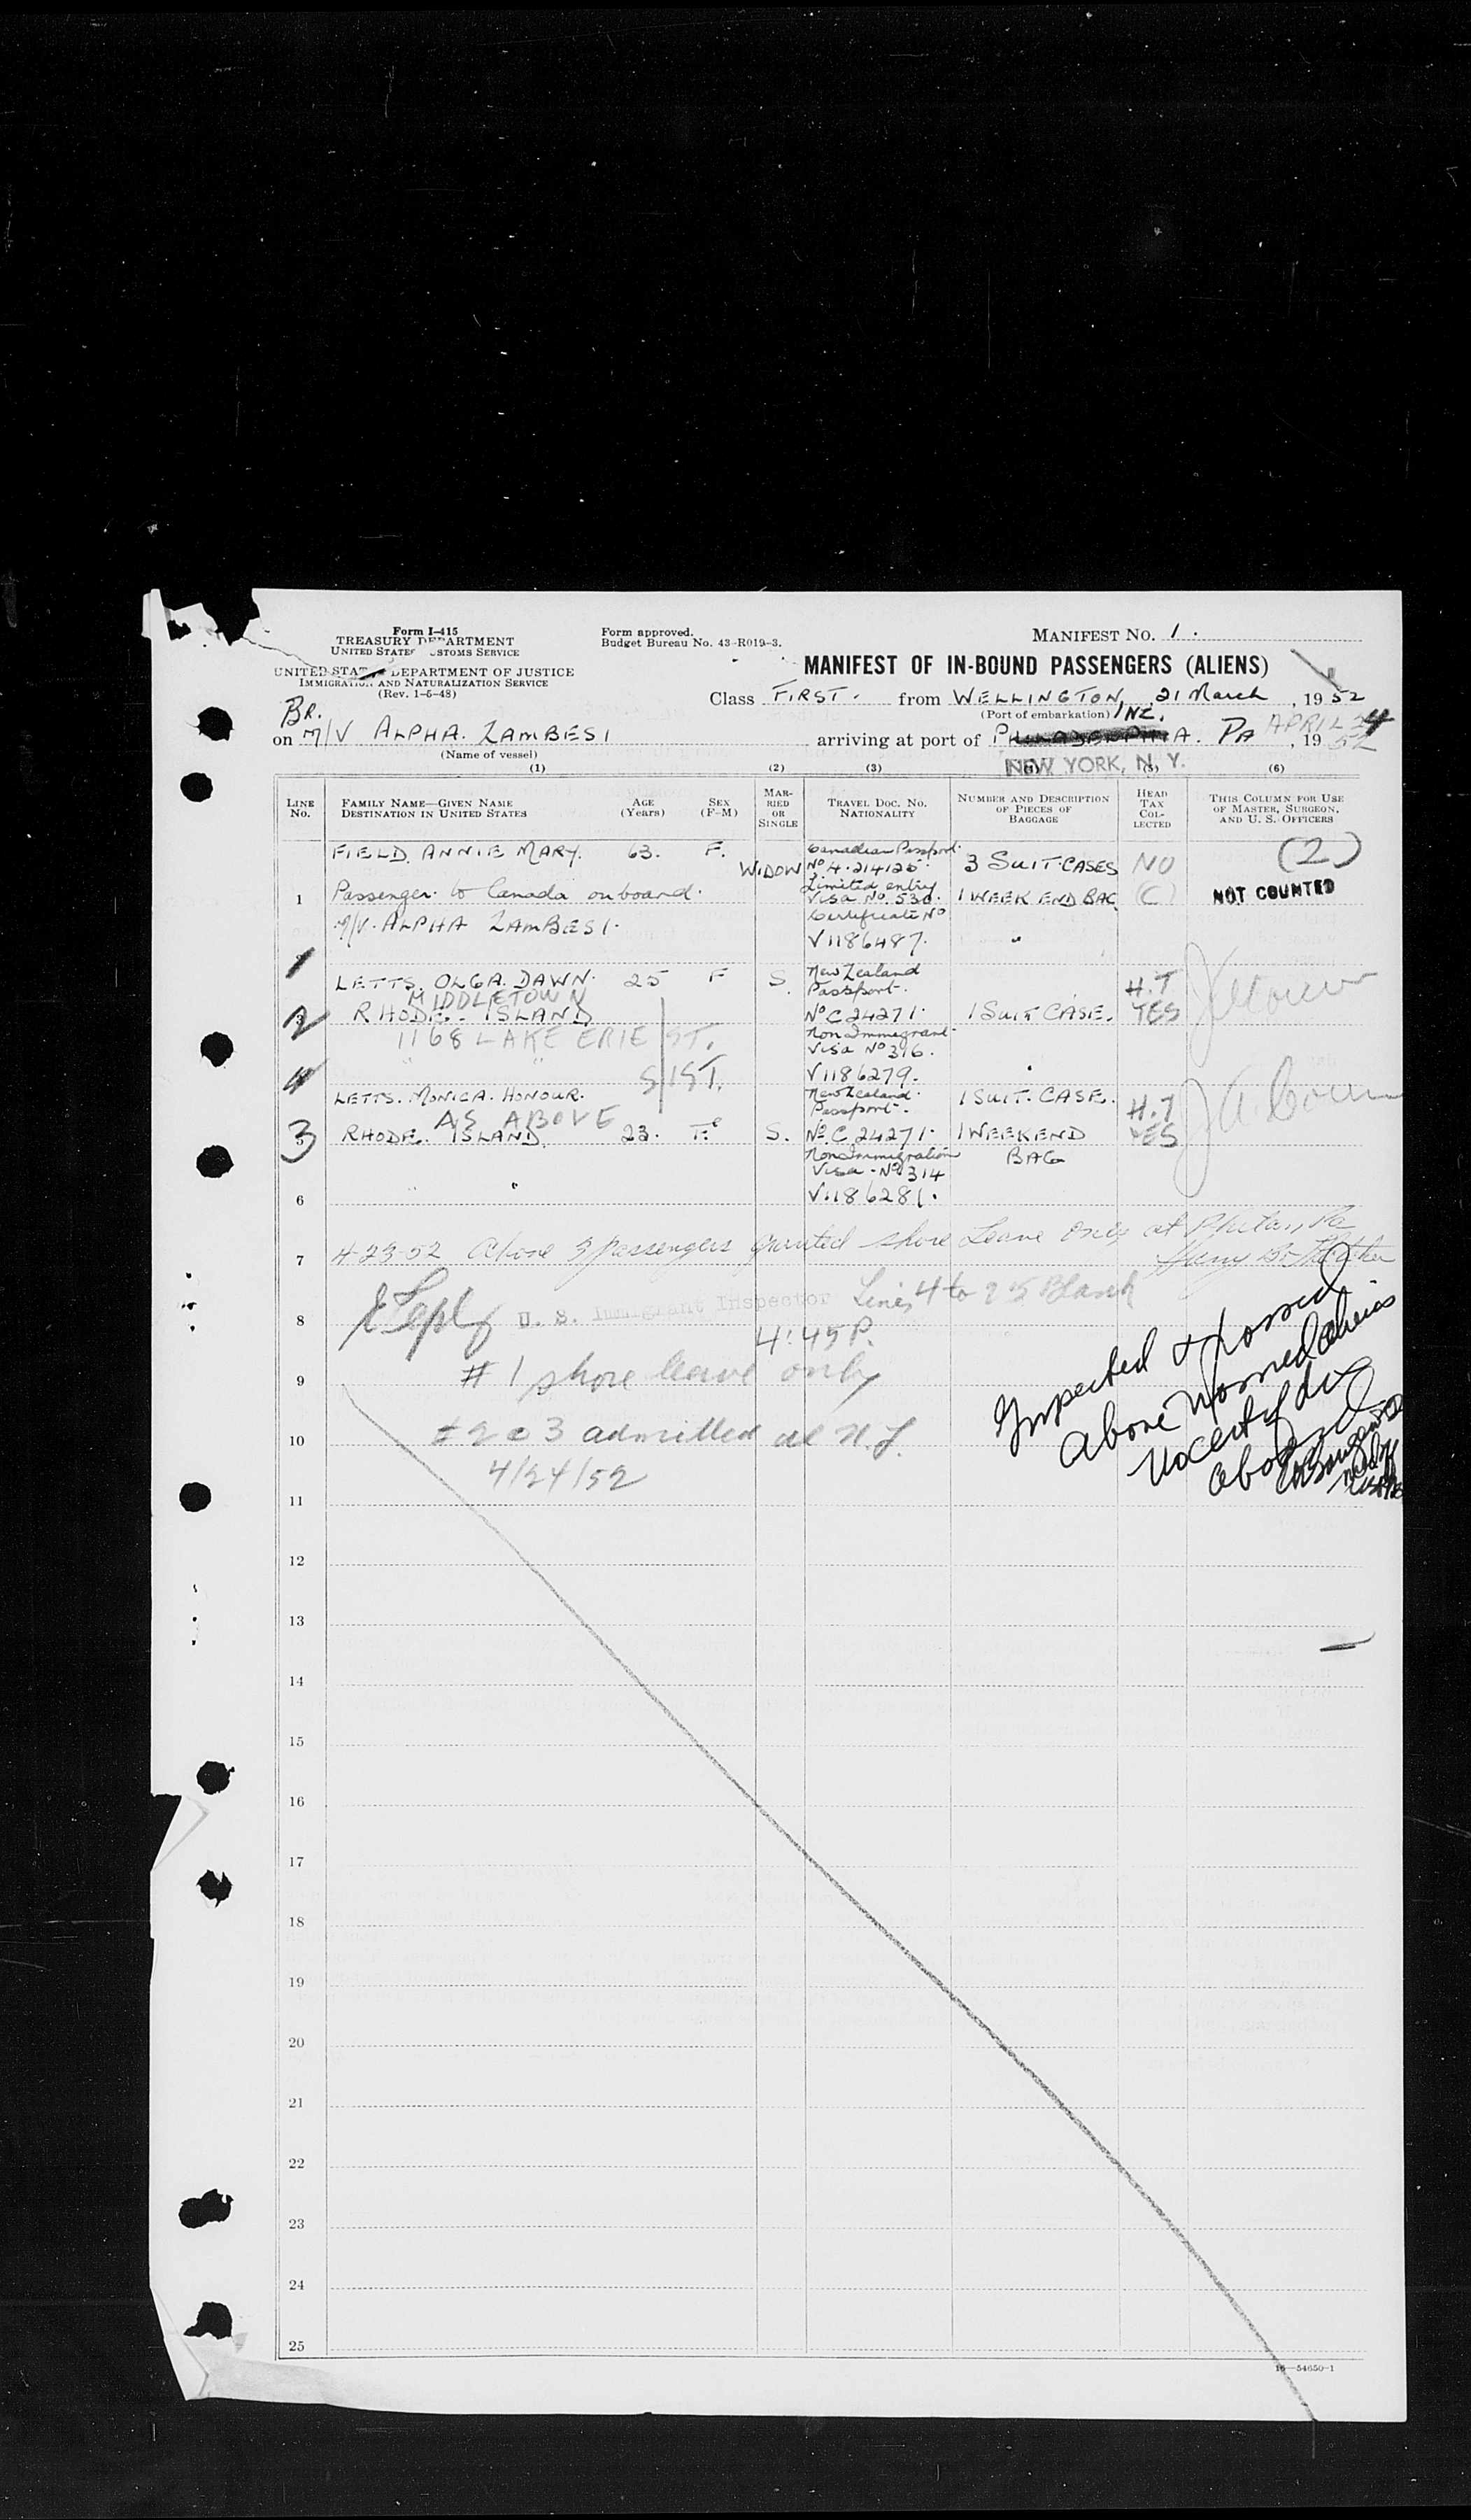 Form I-415
TREASURY DEPARTMENT
UNITED STATES CUSTOMS SERVICE
UNITED STATES DEPARTMENT OF JUSTICE
IMMIGRATION AND NATURALIZATION SERVICE
(Rev. 1-6-48)
Form approved.
Budget Bureau No. 43-R019-3.
MANIFEST NO. 1.
MANIFEST OF IN-BOUND PASSENGERS (ALIENS)
Class FIRST. from WELLINGTON, NZ. 21 March, 1952
(Port of embarkation)
Br.
on M/V ALPHA. ZAMBESI
(Name of vessel)
arriving at port of PHILADELPHIA. PA APRIL 24, 1952
NEW YORK, N. Y.
(1) (2) (3) (4) (5) (6)
LINE No.
FAMILY NAME—GIVEN NAME
DESTINATION IN UNITED STATES
AGE (Years)
SEX (F-M)
MARRIED OR SINGLE
TRAVEL DOC. NO. NATIONALITY
NUMBER AND DESCRIPTION OF PIECES OF BAGGAGE
HEAD TAX COLLECTED
THIS COLUMN FOR USE OF MASTER, SURGEON, AND U. S. OFFICERS
FIELD. ANNIE MARY. 63. F. WIDOW
Canadian Passport.
No 4.214125.
3 SUIT-CASES NO (2)
Limited entry
1 Passenger to Canada on board. Visa No. 530. 1 WEEK END BAG (C) NOT COUNTED
Certificate No
M/V. ALPHA ZAMBESI.
V1186487. "
1
LETTS. OLGA. DAWN. 25 F S.
New Zealand
Passport.
H.T
MIDDLETOWN
2 RHODE. ISLAND No C 24271. 1 SUIT CASE. YES
1168 LAKE ERIE ST.
Non Immigrant
Visa No 316.
S/ST.
V1186279.
4
LETTS. MONICA. HONOUR.
New Zealand.
Passport.
1 SUIT. CASE. H.T
AS ABOVE
3 RHODE. ISLAND. 23. F. S. No. C 24271. 1 WEEKEND YES
BAG
Non Immigration
Visa - No 314
6 V.1186281.
7 4-23-52 Above 3 passengers granted shore leave only at Phila, Pa
8 U. S. Immigrant Inspector Lines 4 to 25 Blank
4:45 P.
9 #1 shore leave only
Inspected & passed
above named aliens
10 #2 & 3 admitted at N.Y.
4/24/52
11
12
13
14
15
16
17
18
19
20
21
22
23
24
25
16—54650-1